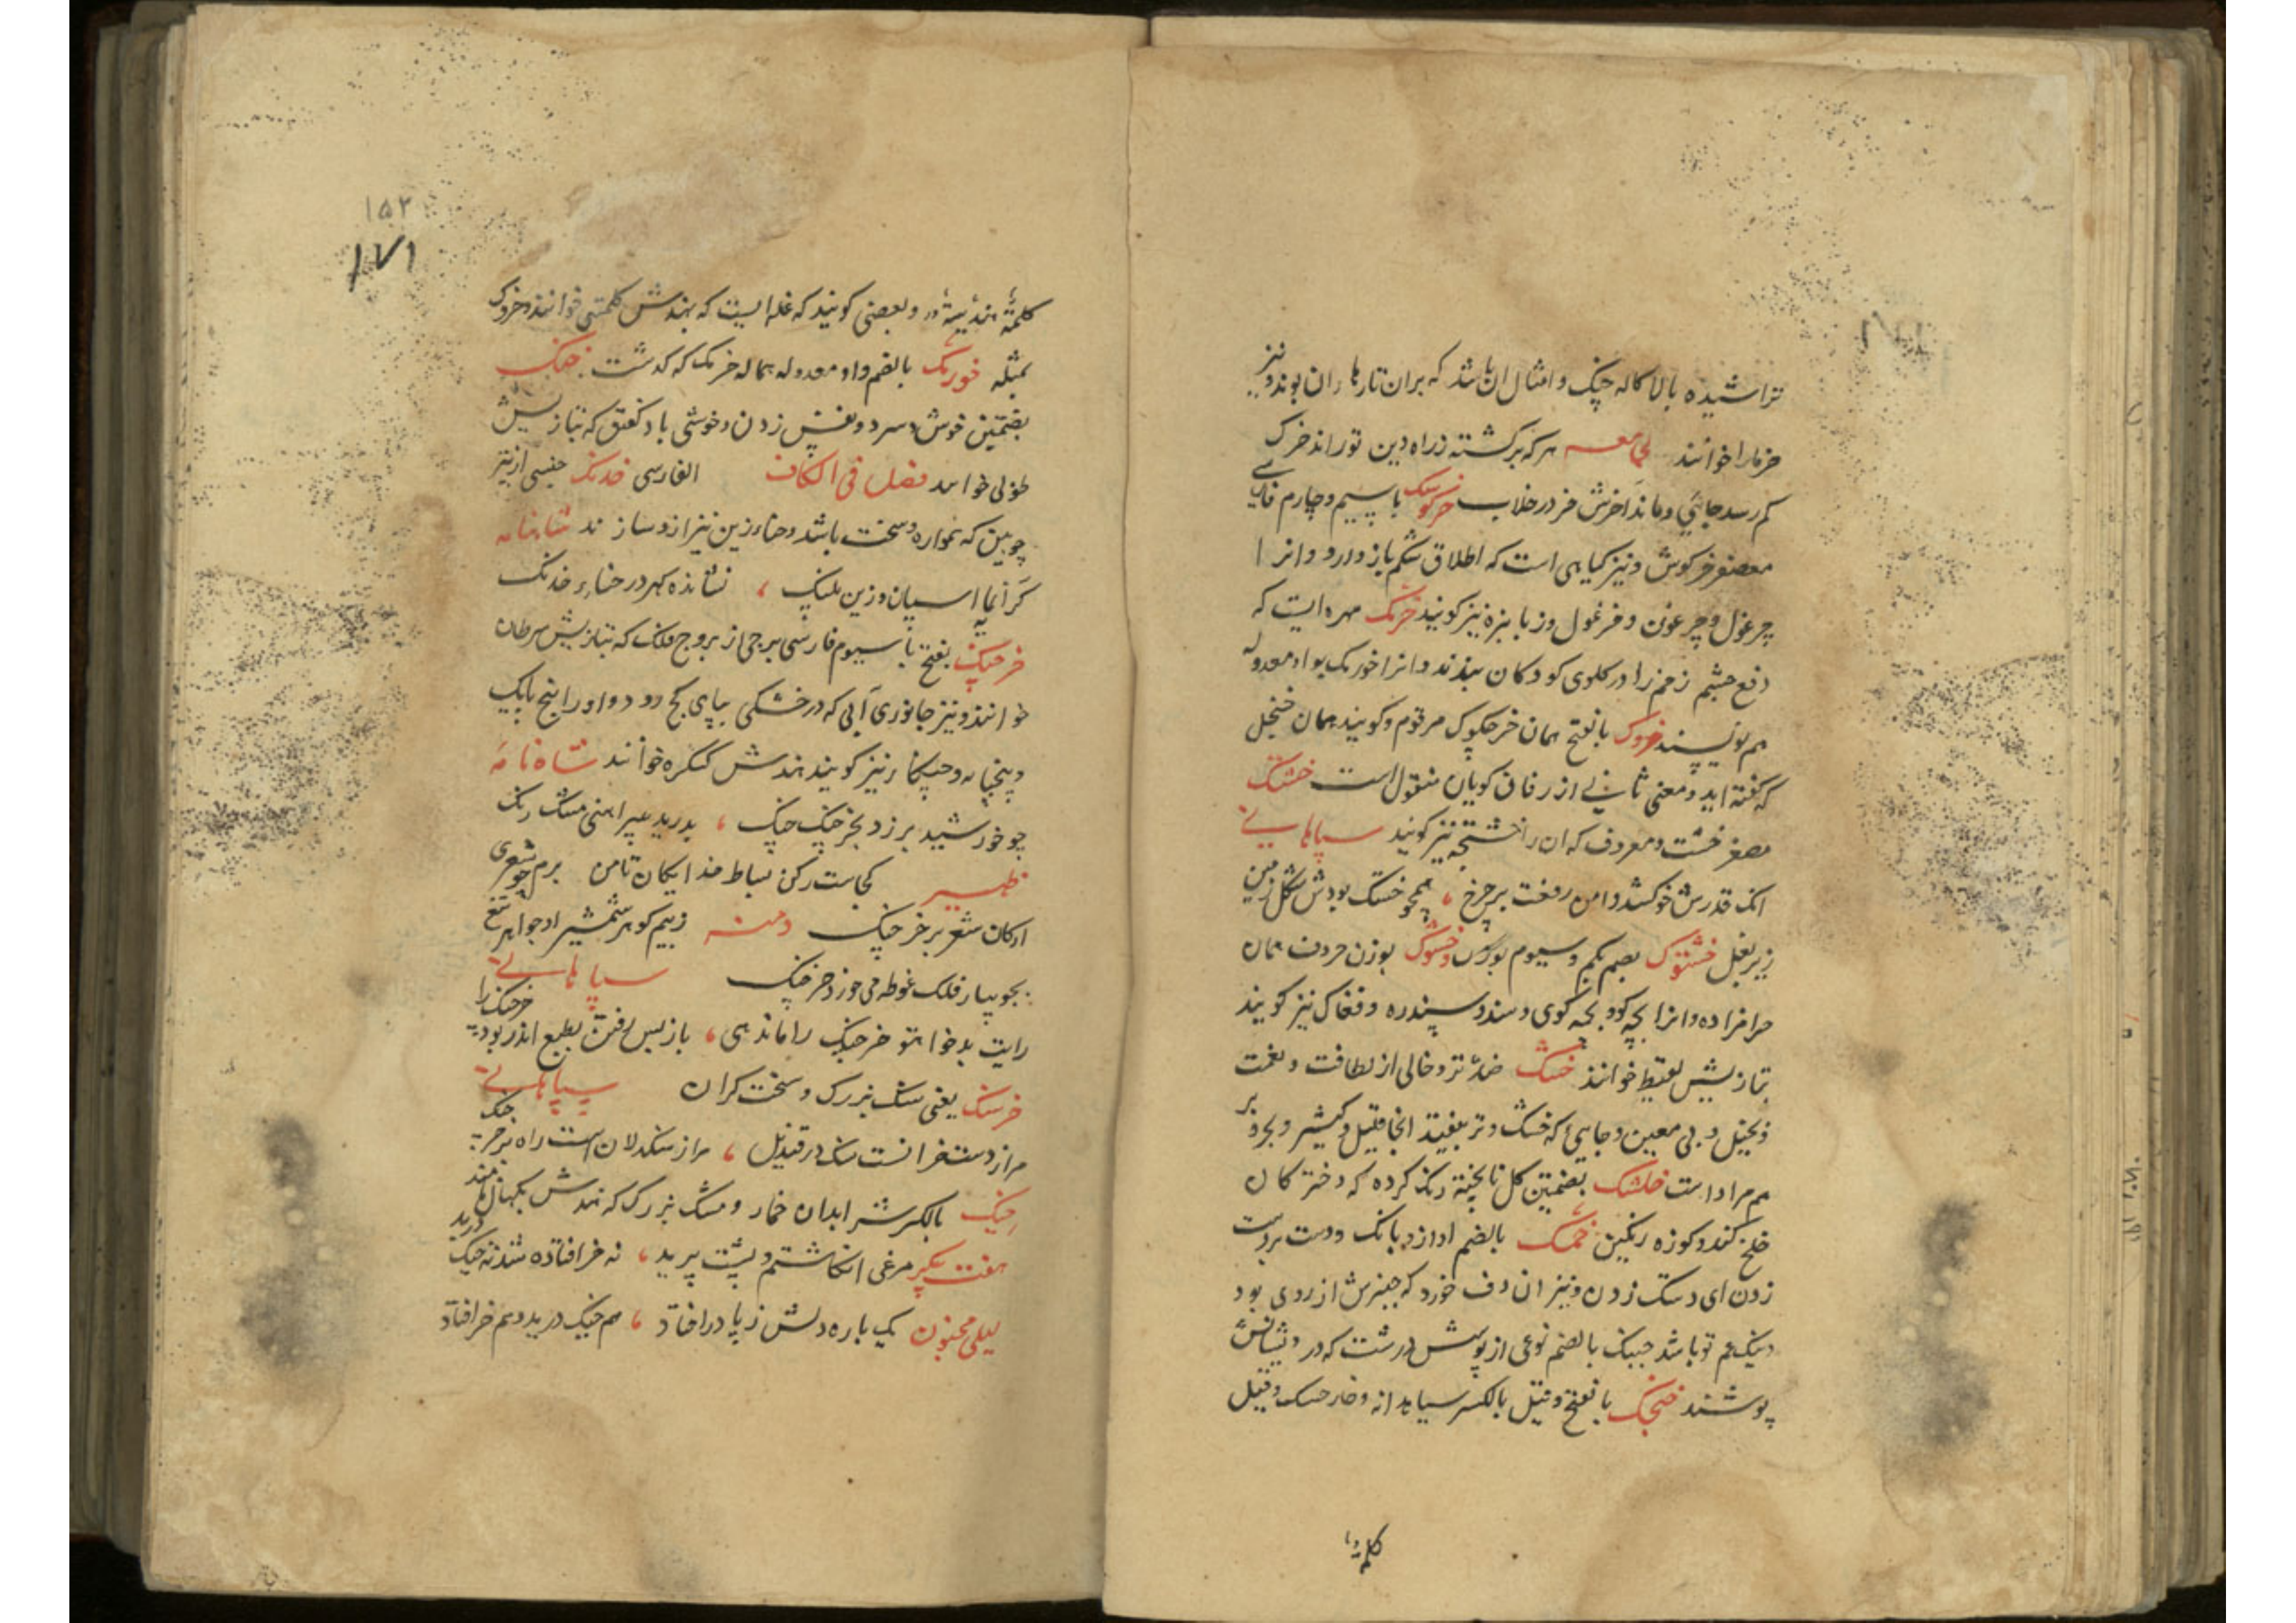 تراشیده بالا کاله چنگ و امثال ان باشد که بران تارها ران بوند و نیز
خرمارا خوانند هر که برگشته ز راه دین تو راند خرک
کم رسد جائی و ماند اخرش خر در خلاب خرکوشک با سیم و چارم فارسی
مصغر خرکوش و نیز کیاهی است که اطلاق شکم باز دارد و انرا
چرغول و چرغون و فرغول و زبا بنزه نیز کویند خرمک مهره ایست که
دفع چشم زخم را در کلوی کودکان ببندند و انرا خورمک بواو معدوله
هم نویسند خروک بالفتح همان خرچکوک مرقوم و کویند همان خنجل
که گفته اید و معنی ثانی از رفان کویان منقول است خشتک
مصغر خشت و معروف که ان را خشتچه نیز کویند سپاهانی
انک قدرش خو کشد دامن رفعت بر چرخ همچو خشتک بودش شکل زمین
زیر بغل خشتوک بضم یکم و سیوم و خشوک بوزن حروف همان
حرامزاده و انرا بچه کوو بچه کوی و سند و سپندره و فغاک نیز کویند
بتازیش لقیط خوانند خشک ضد تر و خالی از لطافت و نعمت
و بخیل و بی معین و جایی که خشک و تر بیفتد انجا قلیل و کثیر و بحر و بر
هم مراد است خلشک بضمتین کل نا پخته رنگ کرده که دختر کان
خلخ کنند و کوزه رنکین خمک بالضم اواز و بانک و دست بر دست
زدن ای دستک زدن و نیز ان دف خورد که چنبرش از روی بود
و نیک هم تو باشد خنبک بالضم نوعی از پوشش درشت که درویشانش
پوشند خنجک بالفتح و قیل بالکسر سیاه دانه و خار خسک و قیل
کلمه
۱۵۲
۱۷۱
کلمة هندیة و بعضی کویند که غله ایست که بهندش کلمتی خوانند و خروک
بمثله خورمک بالضم و او معدوله بماله خرمک که گذشت خهک
بضمتین خوش و سرد و نفس زدن و خوشی باد کفتن که بتازیش
طوبی خوانند فصل فی الکاف الفارسی خدنک جنسی از تیر
چوبین که همواره و سخت باشد و حناء زین نیز ازو سازند شاهنامه
کرانمایه اسپان و زین پلنک نشانده کهر در حناء خدنک
خرچنک بفتح با سیوم فارسی برجی از بروج فلک که بتازیش سرطان
خوانند و نیز جانوری آبی که در خشکی بپای کج رود و او را پنج پایک
و پنچپایه و چنکار نیز کویند هندش کنکره خوانند شاه نامه
چو خورشید برزد بخرچنک چنک بدرید پیراهنی مشک رنک
ظهیر کجاست رکن بساط خدایکان تا من برم چو شعری
ارکان شعر بر خرچنک زبیم کوهر شمشیر او جواهر تیغ
بجویبار فلک غوطه می خورد خرچنک سپاهانی
رایت بدخواه تو خرچنک را ماند همی باز پس رفتن بطبع اندر بود خرچنک را
خرسنک یعنی سنک بزرک و سخت کران سپاهانی
مرا از دست خرانست سنک در قندیل مرا ز سنکدلان است راه بر خرسنک
خیک بالکسر شرابدان خمار و مشک بزرک که هندش پکهال نامند
هفت پیکر مرغی انکاشتم و پشت پرید نه خر افتاده شد نه خیک درید
لیلی مجنون یک باره دلش ز پا در افتاد هم خیک درید و هم خر افتاد